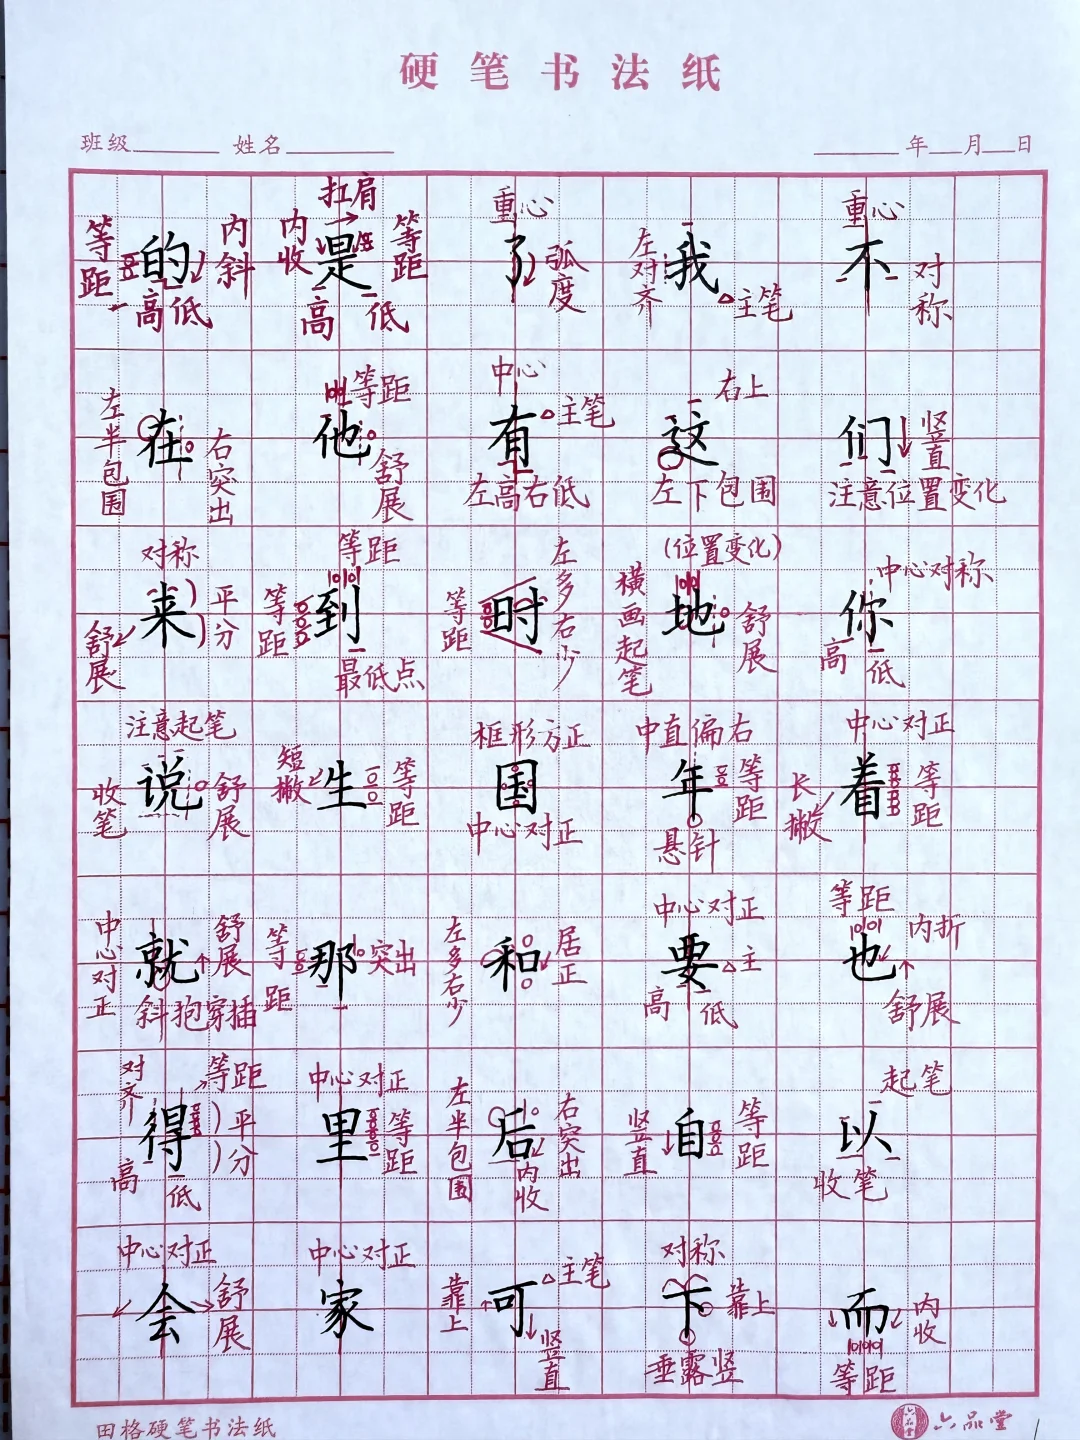 硬笔书法纸
班级 姓名 年 月 日
等距 的 内斜 高 低
扛肩 内收 是 等距 高 低
重心 了 弧度
左对齐 我 主笔
重心 不 对称
左半包围 在 右突出
等距 他 舒展
中心 有 主笔 左高右低
右上 这 左下包围
们 竖直 注意位置变化
对称 来 平分 舒展
等距 等距 到 最低点
等距 时 左多右少
(位置变化) 横画起笔 地 舒展
中心对称 你 高 低
注意起笔 收笔 说 舒展
短撇 生 等距
框形方正 国 中心对正
中直偏右 年 等距 悬针
中心对正 长撇 着 等距
中心对正 就 舒展 斜抱穿插
等距 那 突出
左多右少 和 居正
中心对正 要 主 高 低
等距 也 内折 舒展
对齐 等距 得 平分 高 低
中心对正 里 等距
左半包围 后 右突出 内收
竖直 自 等距
起笔 以 收笔
中心对正 会 舒展
中心对正 家
靠上 可 主笔 竖直
对称 卞 靠上 垂露竖
而 内收 等距
田格硬笔书法纸 六品堂 六品堂